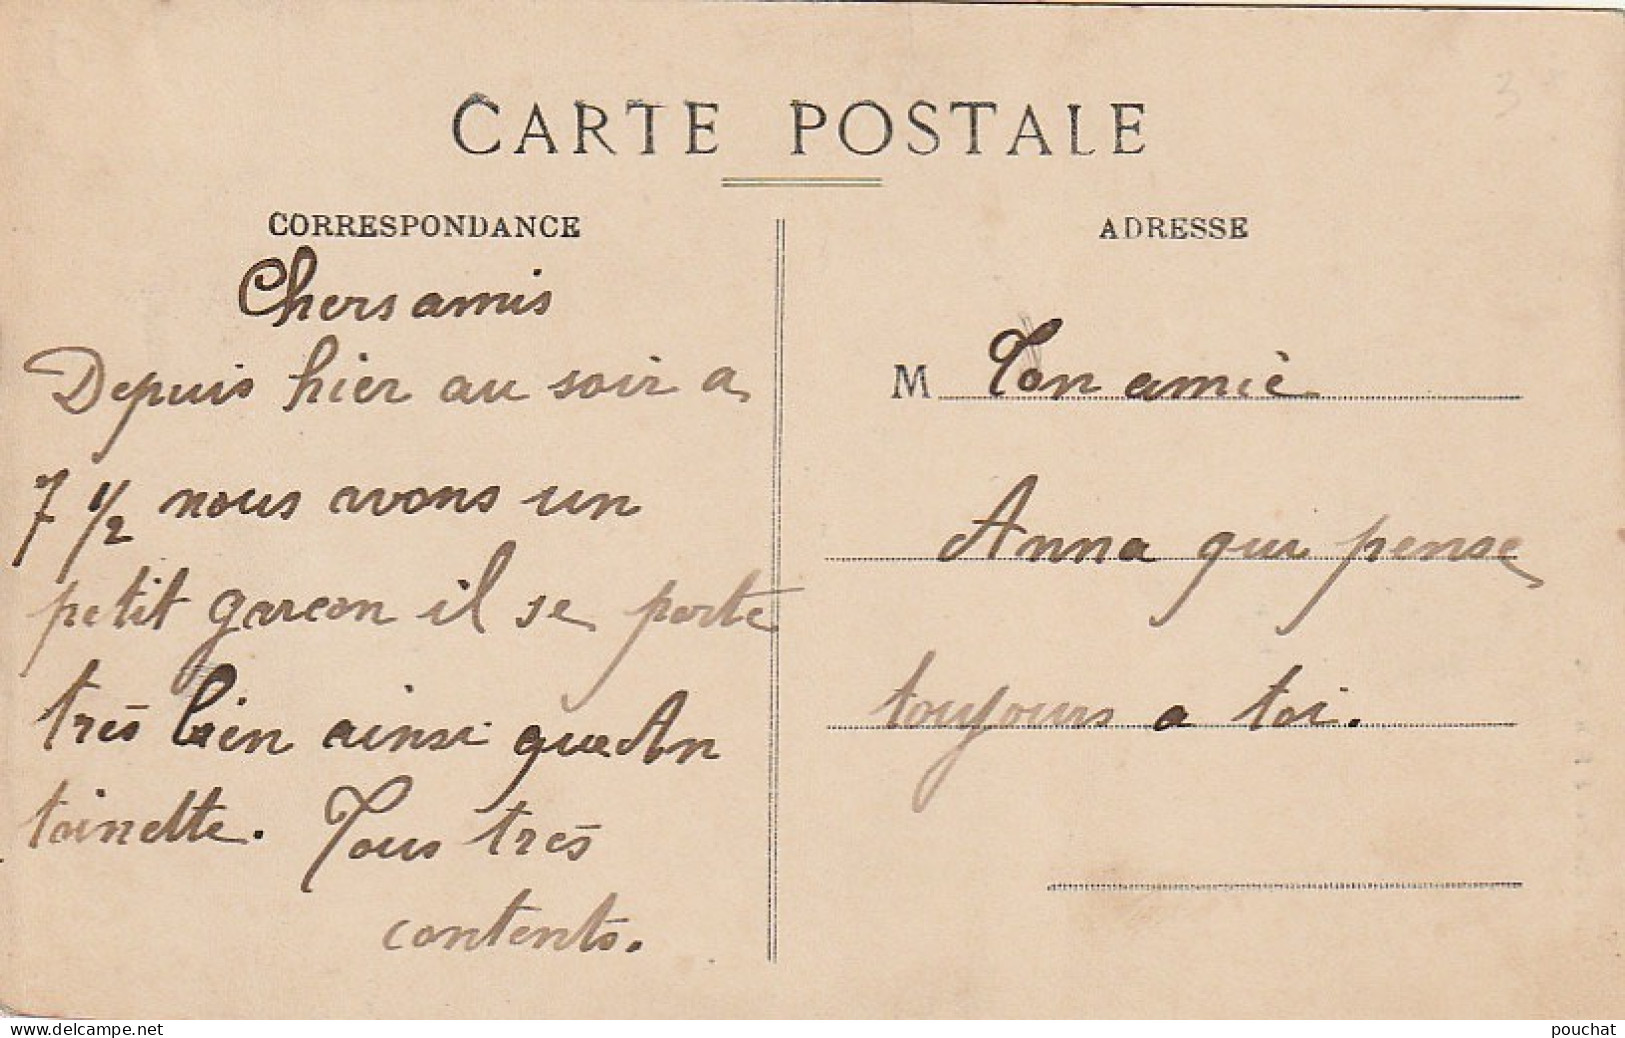 CARTE POSTALE
CORRESPONDANCE
Chers amis
Depuis hier au soir a
7 1/2 nous avons un
petit garcon il se porte
très bien ainsi que An
toinette. Tous très
contents.
ADRESSE
M Ton amie
Anna qui pense
toujours a toi.
3
www.delcampe.net
pouchat